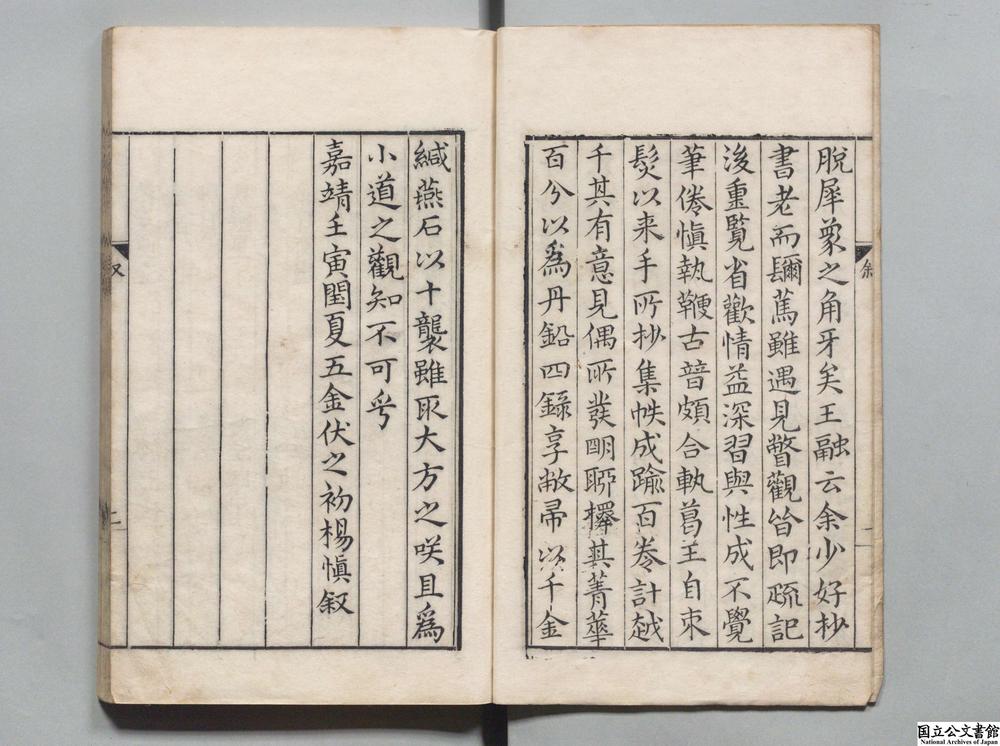 脫犀象之角牙矣王融云余少好抄
書老而彌篤雖遇見瞥觀皆即疏記
後重覽省歡情益深習與性成不覺
筆倦愼執鞭古昔頗合軌葛王自束
髮以来手所抄集帙成踰百卷計越
千其有意見偶所發明聊櫸其菁華
百分以爲丹鉛四錄享敝帚以千金
緘燕石以十襲雖取大方之咲且爲
小道之觀知不可乎
嘉靖壬寅閏夏五金伏之初楊愼叙
二
国立公文書館
National Archives of Japan